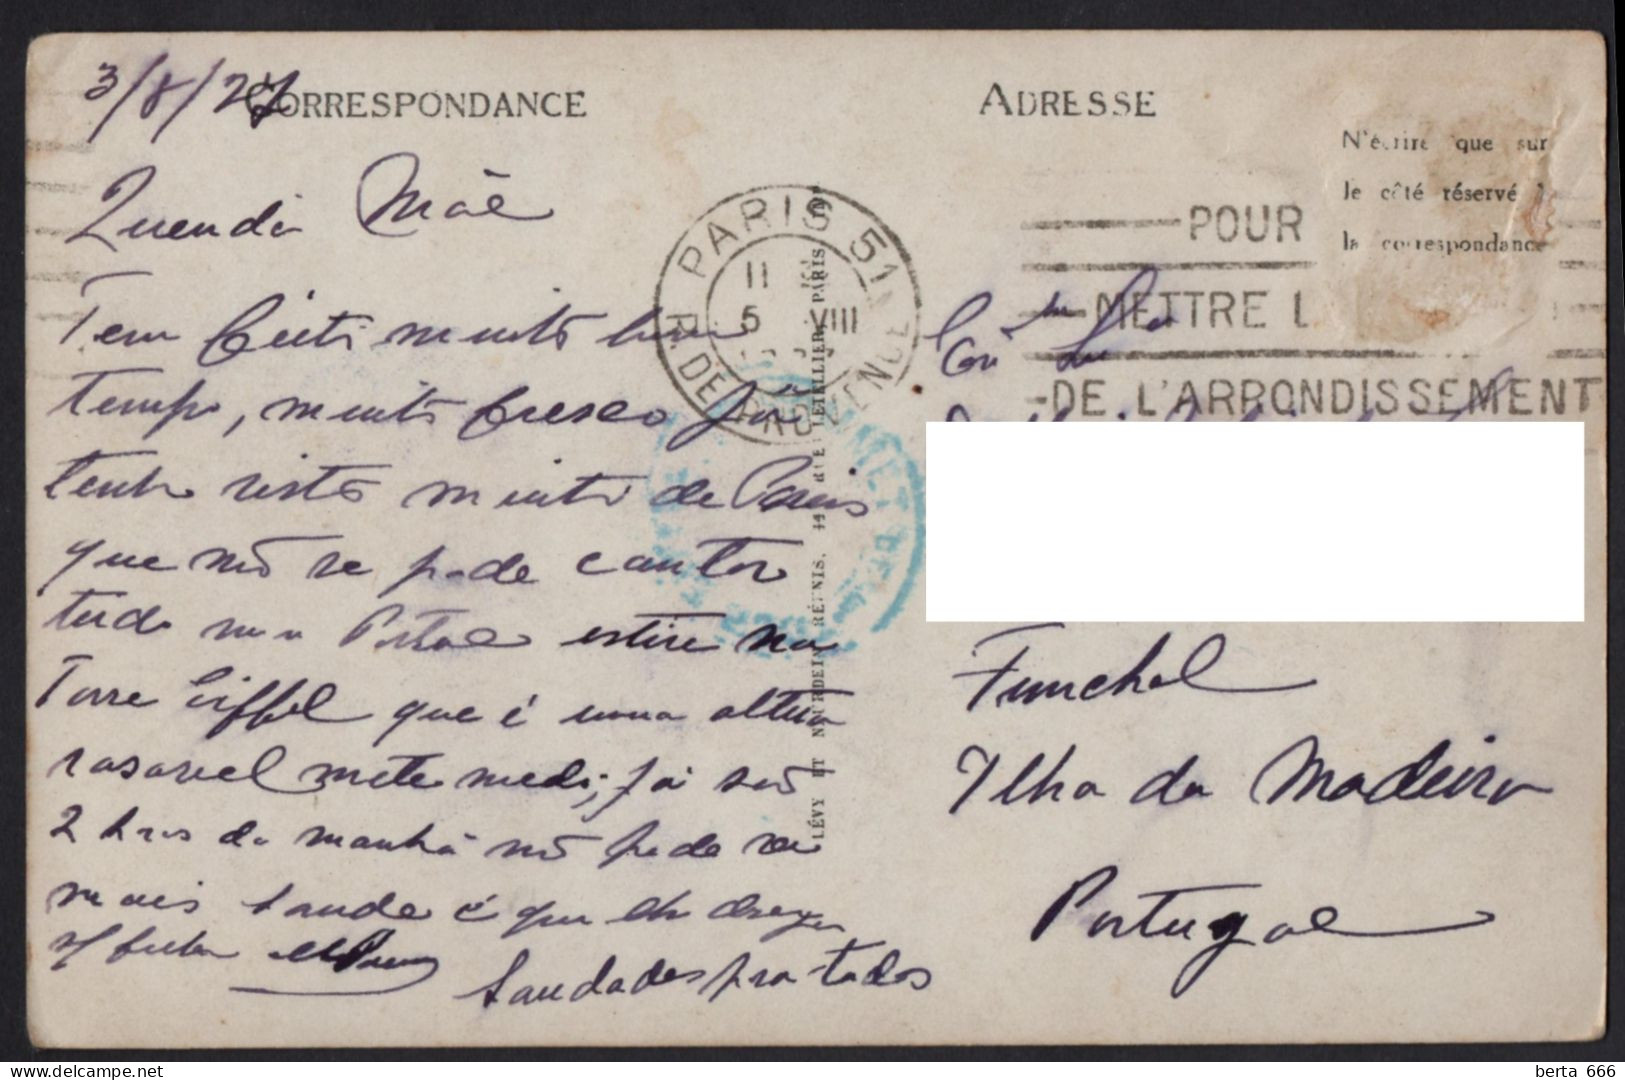 3/8/27
CORRESPONDANCE
ADRESSE
N'écrire que sur
le côté réservé
la correspondance
PARIS 51
R. DE PROVENCE
11
5 VIII
POUR
METTRE L
DE L'ARRONDISSEMENT
Querida Mãe
Tem feito muito bom
tempo, muito fresco já
tenho visto muito de Paris
que não se pode contar
tudo num Postal estive na
Torre Eiffel que é uma altura
rasoavel mete medo, já são
2 horas da manhã não pode ser
mais saude é que lhe deseja
Saudades pra todos
Funchal
Ilha da Madeira
Portugal
LÉVY ET NEURDEIN RÉUNIS, 44 RUE LETELLIER, PARIS
berta 666